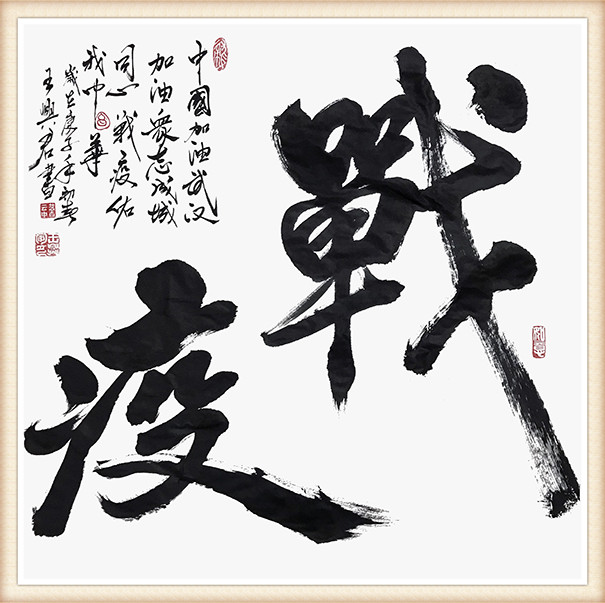 戰
疫
中國加油武汉
加油衆志成城
同心戰疫佑
我中華
歲在庚子年初春
王興君書